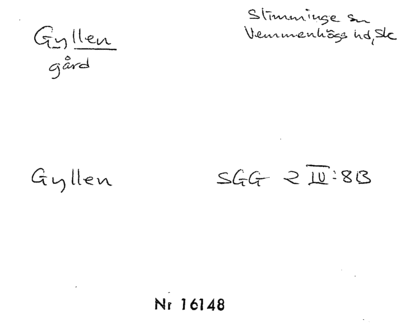 Gyllen
gård
Slimminge sn
Vemmenhögs hd, Sk
Gyllen SGG 2 IV:8B
Nr 16148